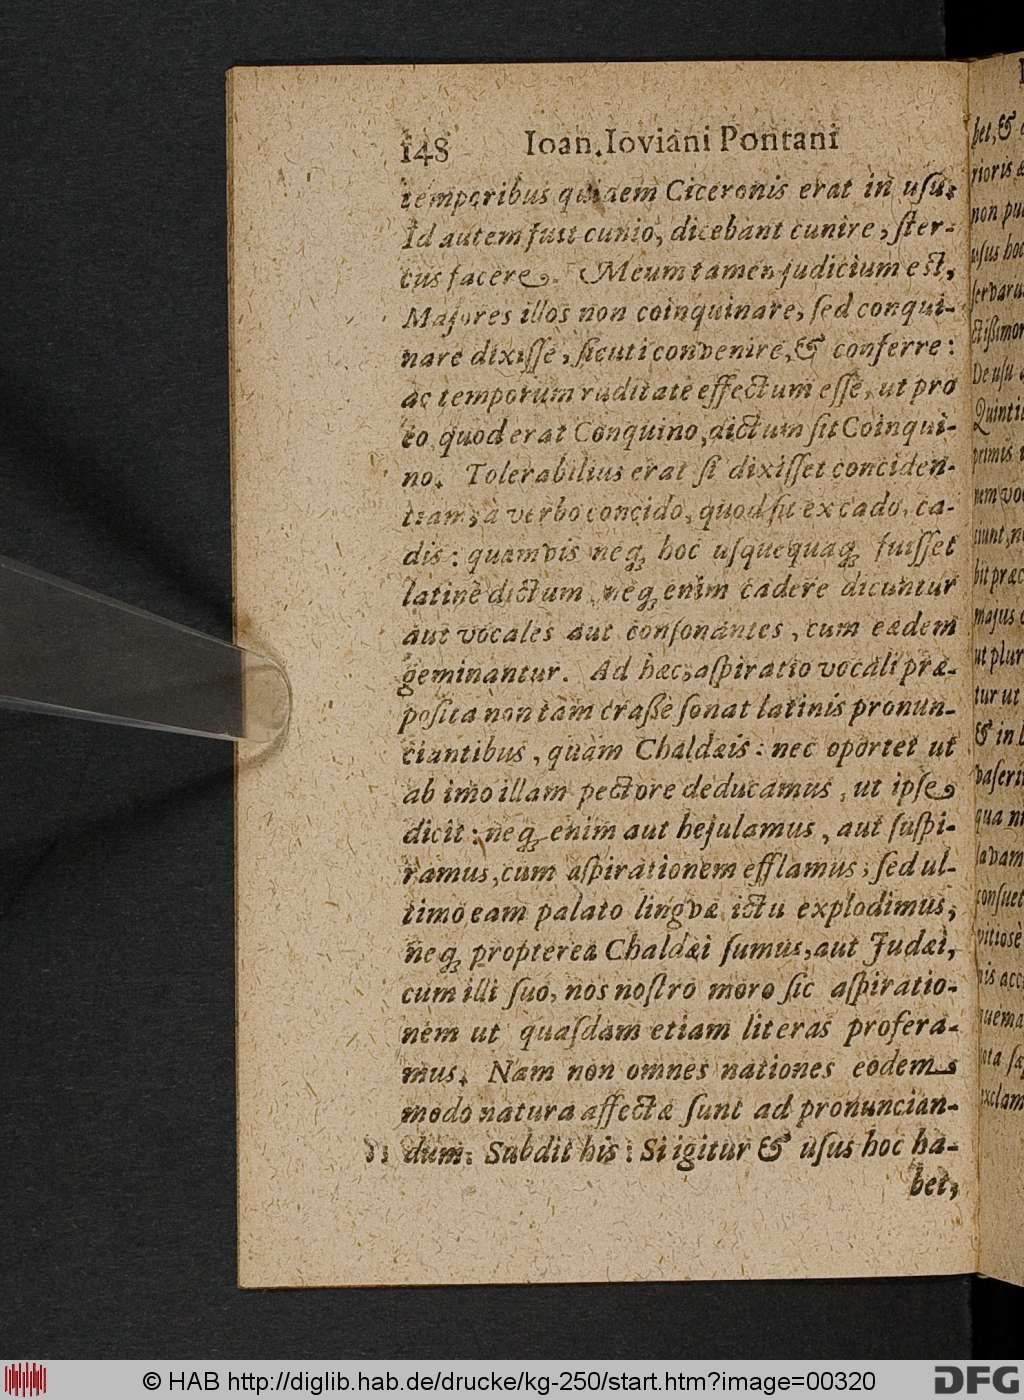 148 Ioan. Ioviani Pontani
temporibus quidem Ciceronis erat in uſu.
Id autem fuit cunio, dicebant cunire, ſter-
cus facere. Meum tamen judicium eſt,
Majores illos non coinquinare, ſed conqui-
nare dixiſſe, ſicuti convenire, & conferre:
ac temporum ruditate effectum eſſe, ut pro
eo quod erat Conquino, dictum ſit Coinqui-
no. Tolerabilius erat ſi dixiſſet conciden-
tiam, à verbo concido, quod ſit ex cado, ca-
dis: quamvis neq; hoc uſquequaq; fuiſſet
latinè dictum, neq; enim cadere dicuntur
aut vocales aut conſonantes, cum eædem
geminantur. Ad hæc, aſpiratio vocali præ-
poſita non tàm craßè ſonat latinis pronun-
ciantibus, quàm Chaldæis: nec oportet ut
ab imo illam pectore deducamus, ut ipſe
dicit: neq; enim aut hejulamus, aut ſuſpi-
ramus, cum aſpirationem efflamus, ſed ul-
timò eam palato lingvæ ictu explodimus,
neq; propterea Chaldæi ſumus, aut Judæi,
cum illi ſuo, nos noſtro more ſic aſpiratio-
nem ut quaſdam etiam literas profera-
mus. Nam non omnes nationes eodem
modo natura affectæ ſunt ad pronuncian-
dum. Subdit his: Si igitur & uſus hoc ha-
bet,
bet, &
rioris
non
uſus hoc
ſervaru
ctißimor
De uſu
Quinti
primis
nem vo
ciunt, n
bit præc
majus
ut plur
tur ut
& in
vaſeri
qua
conſuet
vitioſè
exclam
© HAB http://diglib.hab.de/drucke/kg-250/start.htm?image=00320
DFG